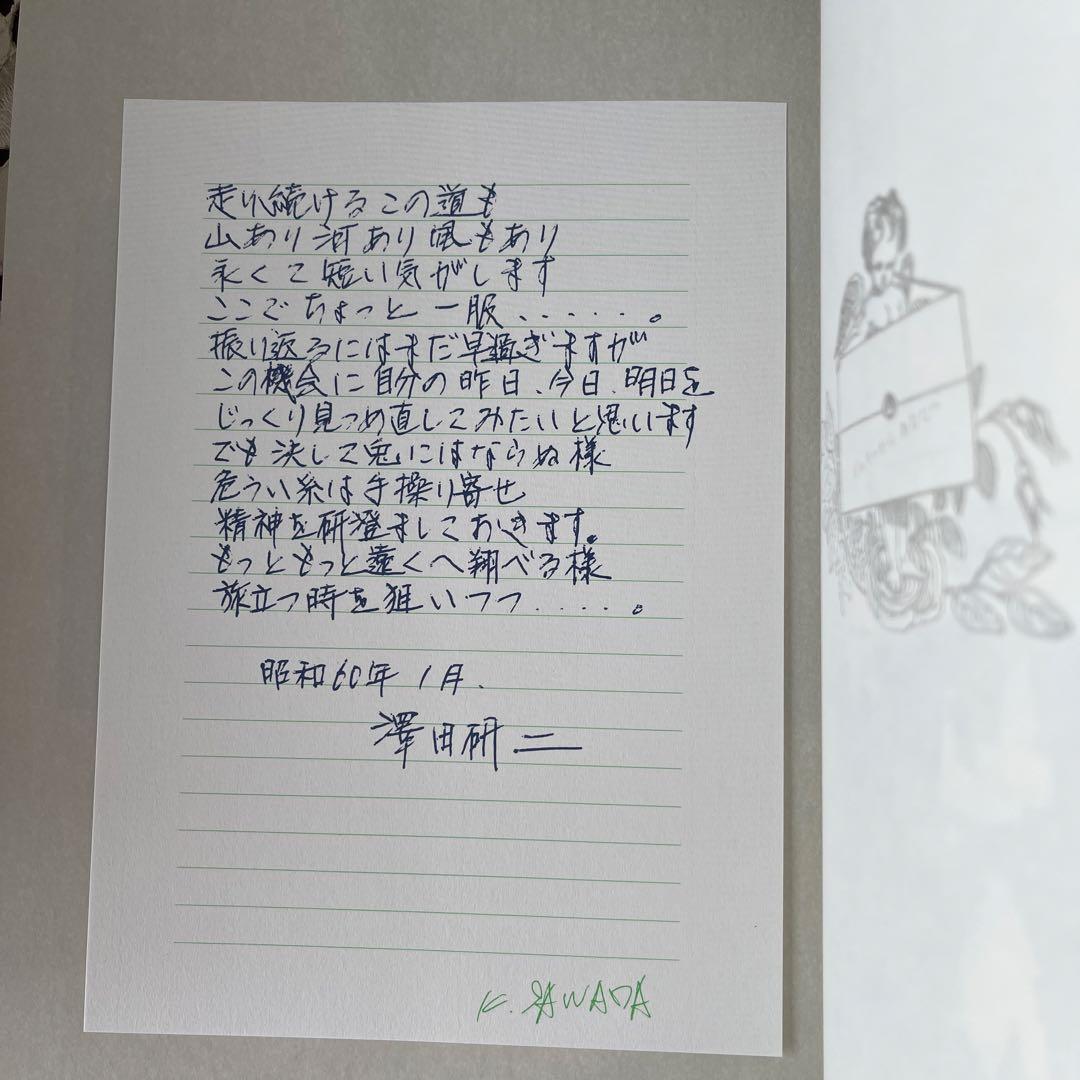 走り続けるこの道も
山あり河あり風もあり
永くて短い気がします
ここでちょっと一服、、、、、。
振り返るにはまだ早過ぎますが
この機会に自分の昨日、今日、明日を
じっくり見つめ直してみたいと思います
でも決して鬼にはならぬ様
危うい糸は手操り寄せ
精神を研澄ましておきます。
もっともっと遠くへ翔べる様
旅立つ時を狙いつつ....。
昭和60年1月.
澤田研二
K. SAWADA